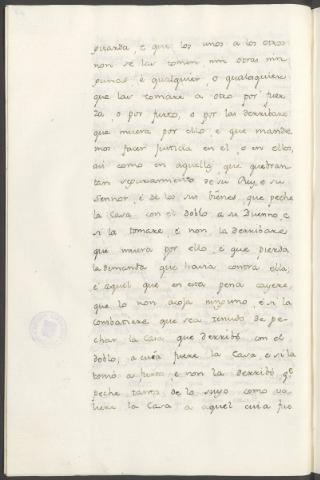 guarda, e que los unos a los otros
non se las tomen, nin otras nin
penas, e qualquier, o qualesquiere
que las tomare a otro por fuer
za, o por furto, o por las derribare
que muera por ello, e que mande
mos facer Justicia en el, o en ellos,
asi como en aquellos, que quebran
tan seguramiento de su Rey, e su
Sennor, e de los sus bienes, que peche
la Casa con el doblo a su Duenno, e
si la tomare, e non la derribare
que muera por ello, e que pierda
la demanda, que havia contra ella;
e aquel que en esta pena cayere,
que lo non acoja ninguno, e si la
combatiere que sea tenudo de pe-
char la Casa, que derribó con el
doblo, a cuia fuere la Casa, e si la
tomó a furto, e non la derribó, qe
peche tanto de lo suyo como va
liere la Casa a aquel cuia fue